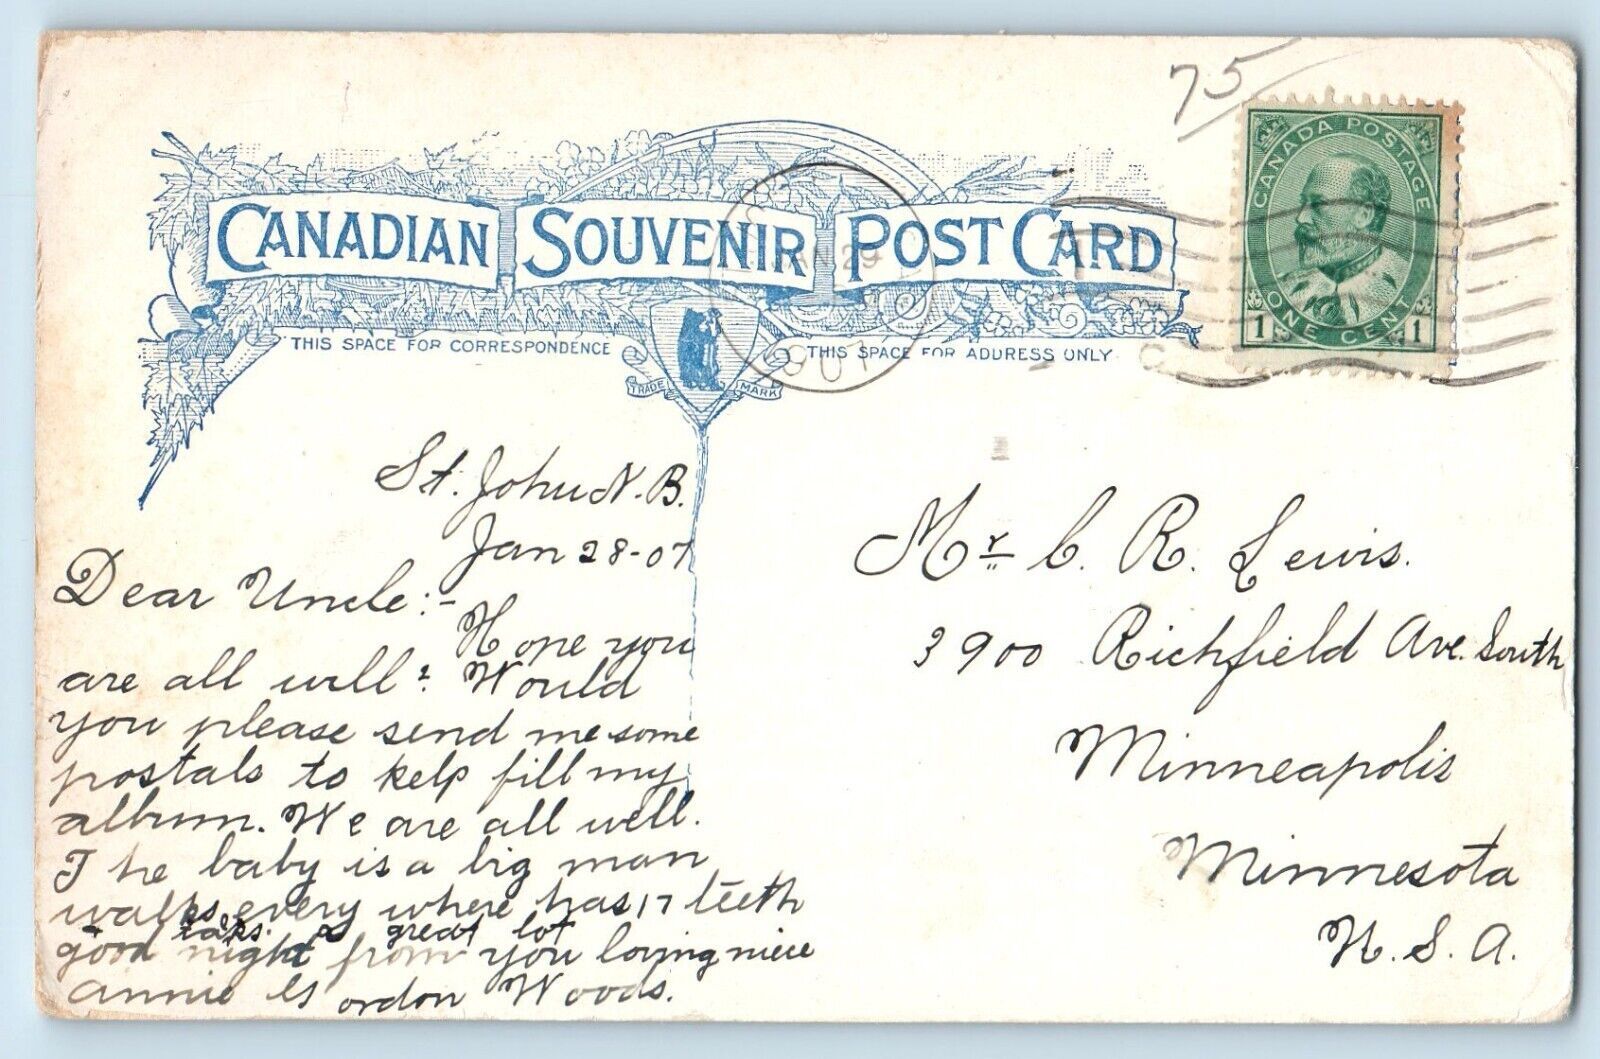 75
CANADA POSTAGE
1 ONE CENT 1
CANADIAN SOUVENIR POST CARD
JAN 29
1907
THIS SPACE FOR CORRESPONDENCE
THIS SPACE FOR ADDRESS ONLY.
TRADE MARK
St. John N.B.
Jan 28-07
Dear Uncle:-
Hope you
are all well? Would
you please send me some
postals to help fill my
album. We are all well.
The baby is a big man
walks every where has 17 teeth
talks a great lot
good night from you loving niece
Annie Gordon Woods.
Mr C. R. Lewis.
3900 Richfield Ave. South
Minneapolis
Minnesota
U.S.A.